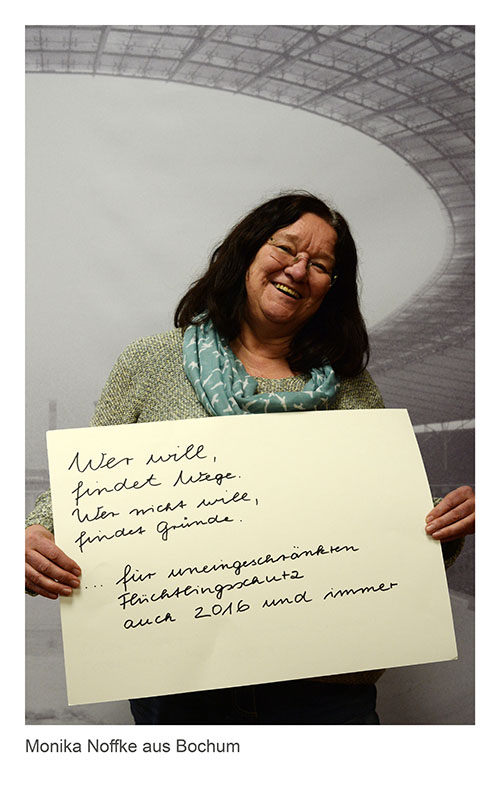 Wer will,
findet Wege.
Wer nicht will,
findet Gründe.
... für uneingeschränkten
Flüchtlingsschutz
auch 2016 und immer
Monika Noffke aus Bochum